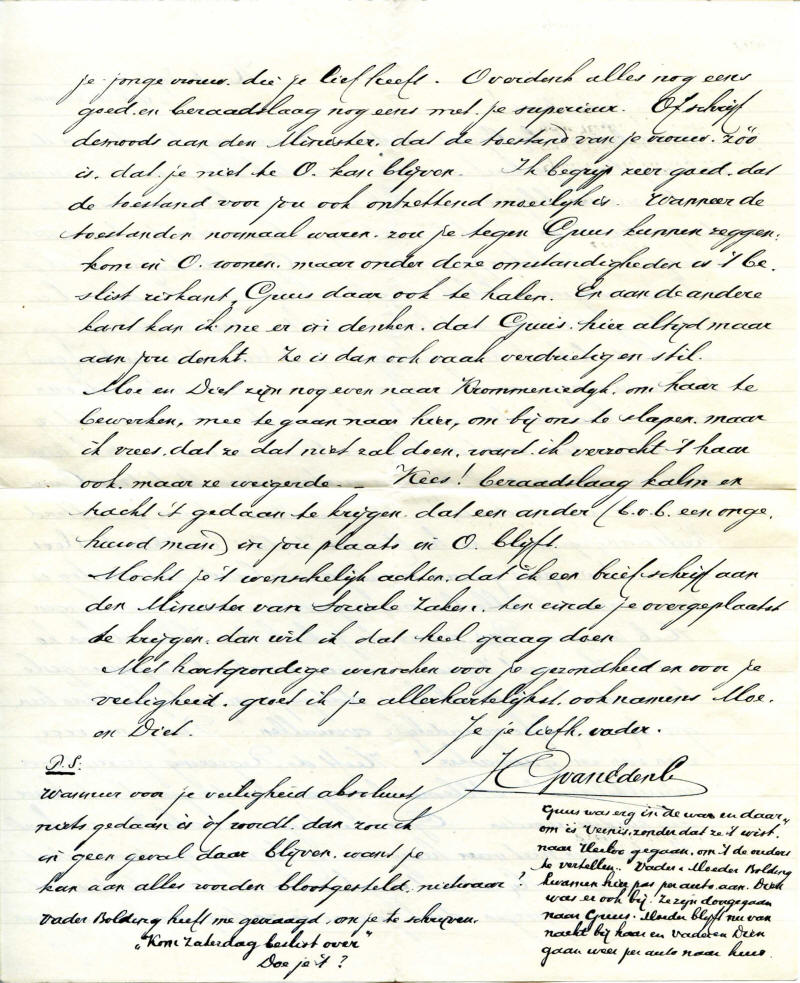 je jonge vrouw. die je lief heeft. Overdenk alles nog eens
goed en beraadslaag nog eens met je superieur. Of schrijf
desnoods aan den Minister. dat de toestand van je vrouw. zóó
is. dat je niet te O. kan blijven. Ik begrijp zeer goed. dat
de toestand voor jou ook ontzettend moeilijk is. Wanneer de
toestanden normaal waren. zou je tegen Guus kunnen zeggen:
kom in O. wonen. maar onder deze omstandigheden is 't be-
slist riskant, Guus daar ook te halen. En aan de andere
kant kan ik me er in denken. dat Guus. hier altijd maar
aan jou denkt. Ze is dan ook vaak verdrietig en stil.
Moe en Diel zijn nog even naar Krommeniedijk. om haar te
bewerken, mee te gaan naar hier, om bij ons te slapen. maar
ik vrees. dat ze dat niet zal doen. want ik verzocht 't haar
ook. maar ze weigerde. – Kees! beraadslaag kalm en
tracht 't gedaan te krijgen. dat een ander (b.v.b. een onge.
huwd man) in jou plaats in O. blijft.
Mocht je 't wenschelijk achten. dat ik een brief schrijf aan
den Minister van Sociale Zaken. ten einde je overgeplaatst
te krijgen. dan wil ik dat heel graag doen
Met hartgrondige wenschen voor je gezondheid en voor je
veiligheid. groet ik je allerhartelijkst. ook namens Moe.
en Diel. Je je liefh. vader.
P.S:
Wanneer voor je veiligheid absoluut
niets gedaan is òf wordt. dan zou ik
in geen geval daar blijven. want je
kan aan alles worden blootgesteld. nietwaar?
Vader Bolding heeft me gevraagd, om je te schrijven.
"Kom Zaterdag beslist over"
Doe je 't?
Guus was erg in de war en daar„
om is zonder dat ze 't wist.
naar Heeloo gegaan. om 't de ouders
te vertellen. Vader & Moeder Bolding
kwamen hier pas per auto. aan. Dien
was er ook bij. Ze zijn doorgegaan
naar Guus. Moeder blijft nu van
nacht bij haar en vader en Dien
gaan weer per auto naar huis.